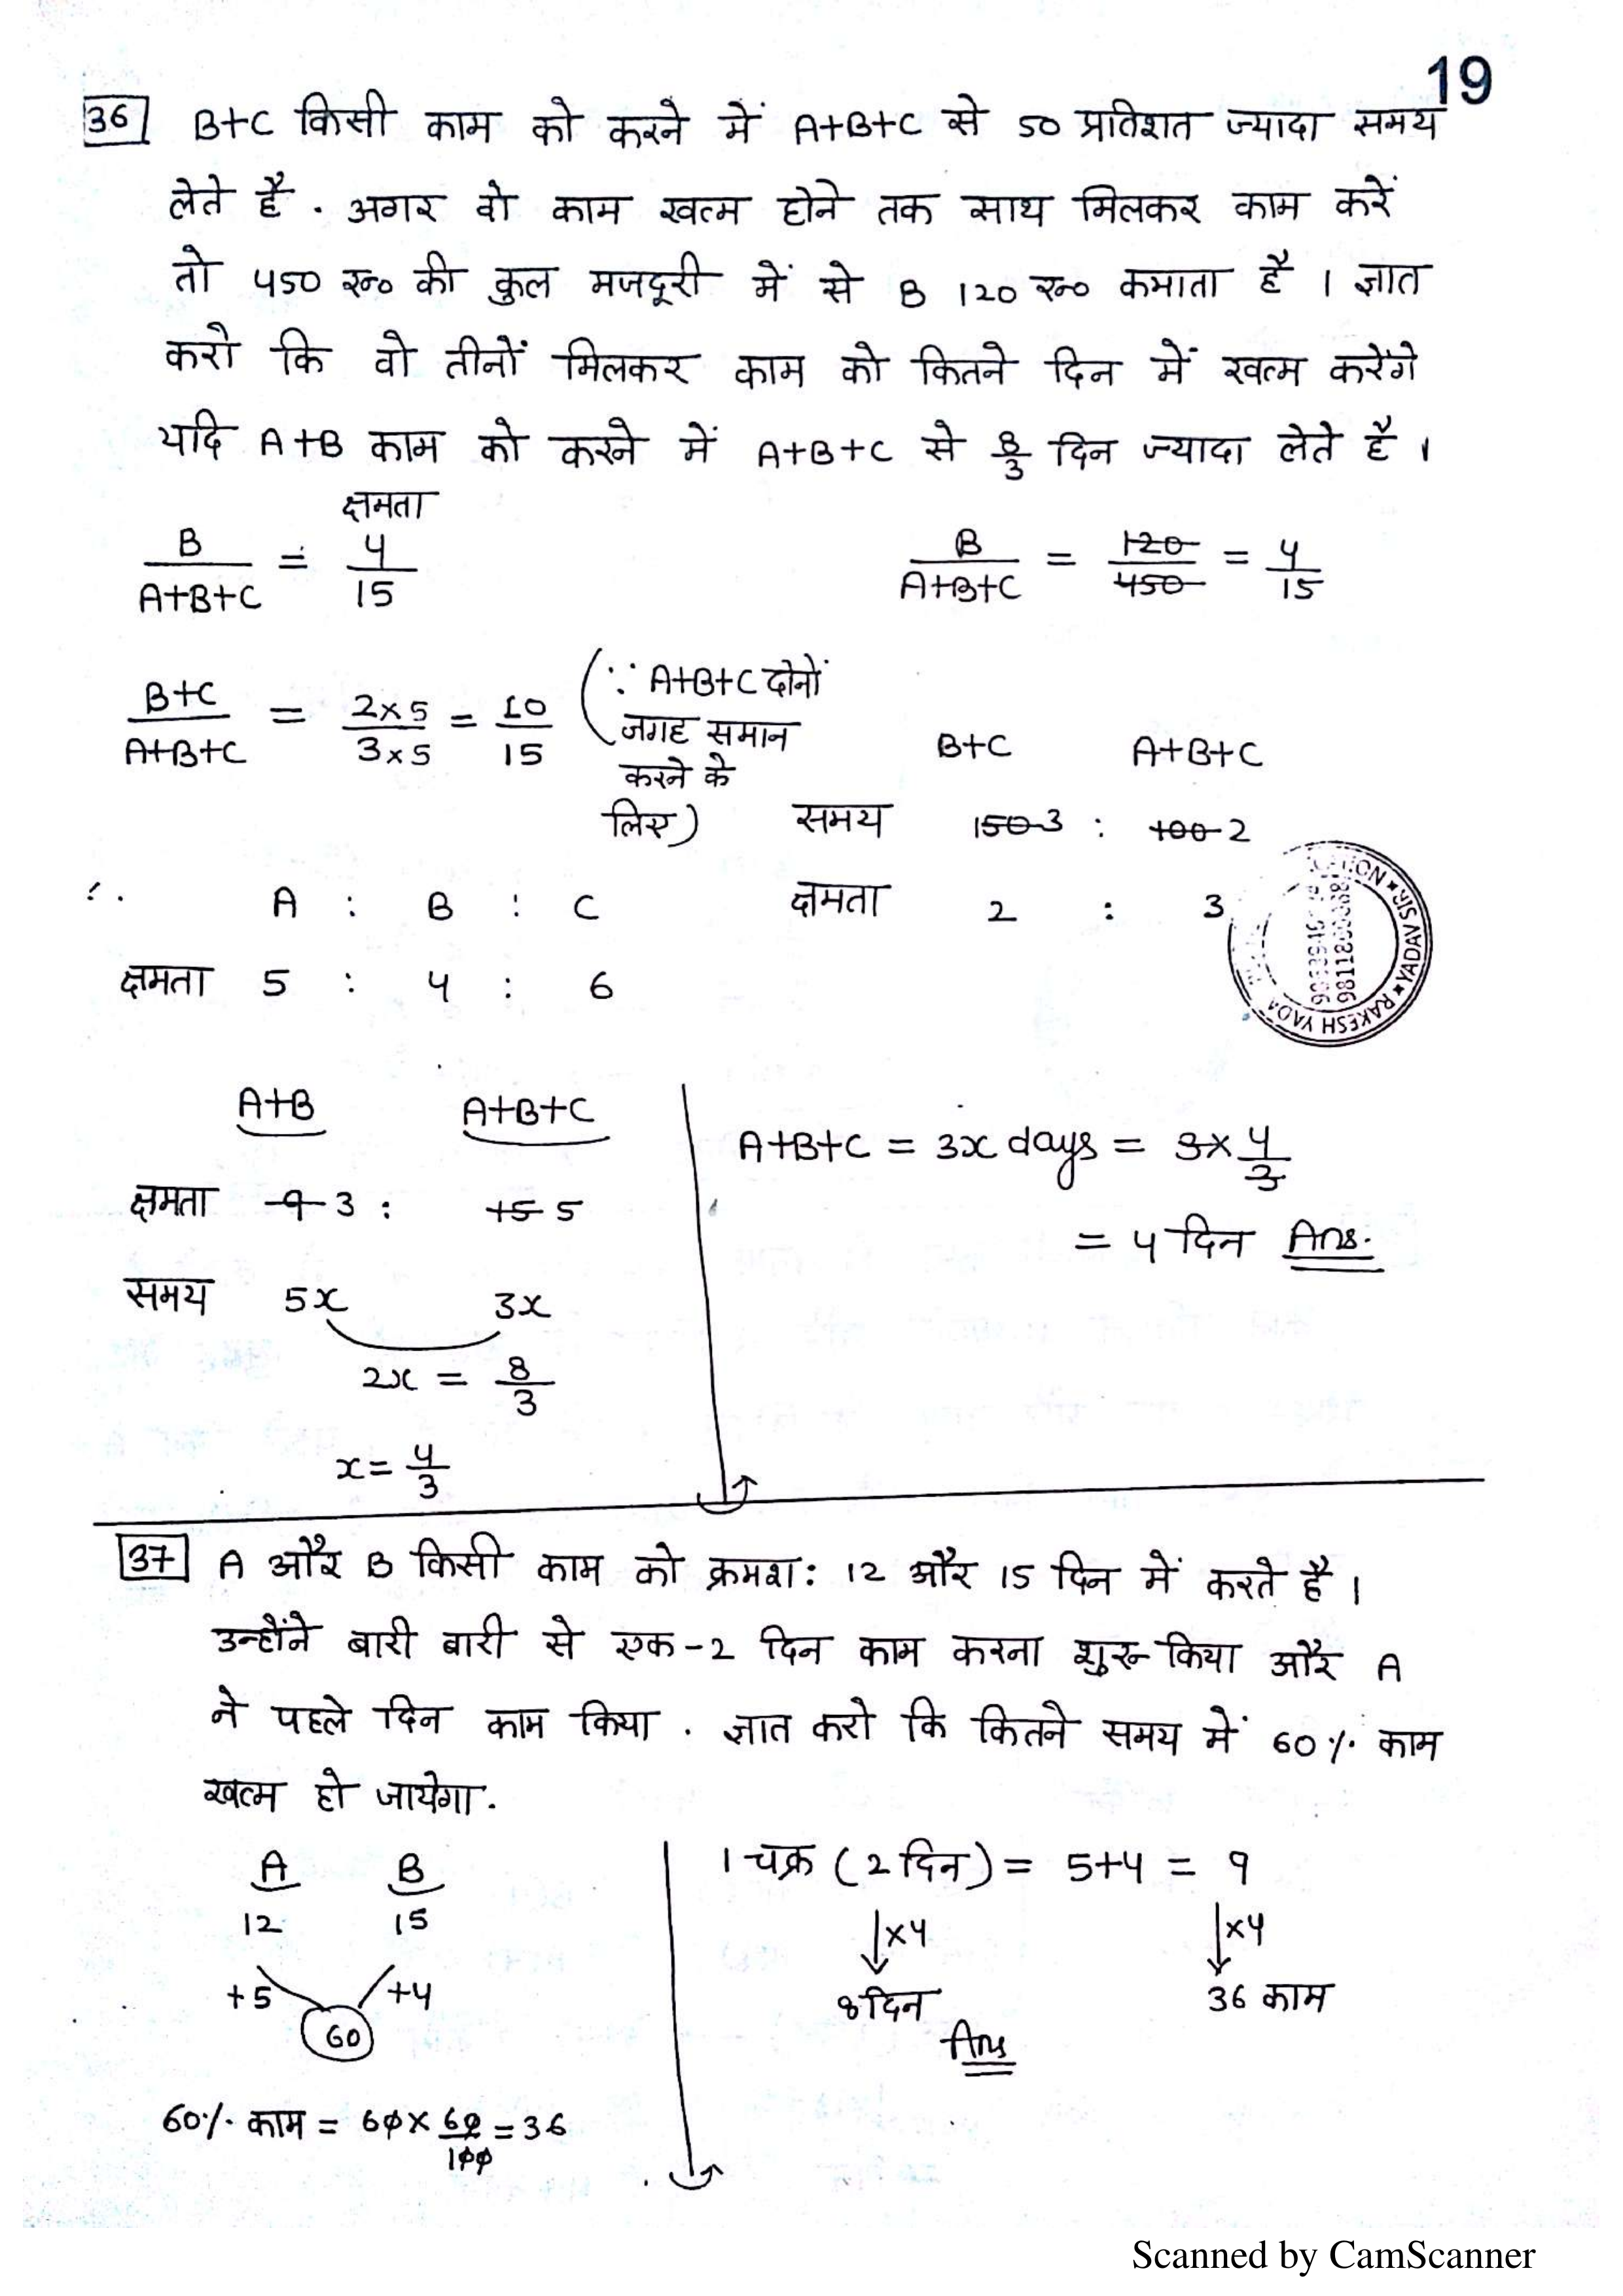 19
36 B+C किसी काम को करने में A+B+C से 50 प्रतिशत ज्यादा समय
लेते है . अगर वो काम खत्म होने तक साथ मिलकर काम करें
तो 450 रू० की कुल मजदूरी में से B 120 रू० कमाता है । ज्ञात
करो कि वो तीनों मिलकर काम को कितने दिन में खत्म करेंगे
यदि A+B काम को करने में A+B+C से 8/3 दिन ज्यादा लेते है ।
क्षमता
B/A+B+C = 4/15
B/A+B+C = 120/450 = 4/15
B+C/A+B+C = 2×5/3×5 = 10/15 (∵ A+B+C दोनों
जगह समान
करने के
लिए)
B+C A+B+C
समय 150 3 : 100 2
क्षमता 2 : 3
∴ A : B : C
क्षमता 5 : 4 : 6
RAKESH YADAV SIR
A+B A+B+C
क्षमता 9 3 : 15 5
समय 5x 3x
2x = 8/3
x = 4/3
A+B+C = 3x days = 3×4/3
= 4 दिन Ans.
37 A और B किसी काम को क्रमश: 12 और 15 दिन में करते है ।
उन्होंने बारी बारी से एक-2 दिन काम करना शुरू किया और A
ने पहले दिन काम किया . ज्ञात करो कि कितने समय में 60% काम
खत्म हो जायेगा .
A B
12 15
+5 +4
60
60% काम = 60 × 60/100 = 36
1 चक्र (2 दिन) = 5+4 = 9
↓×4 ↓×4
8 दिन 36 काम
Ans
Scanned by CamScanner